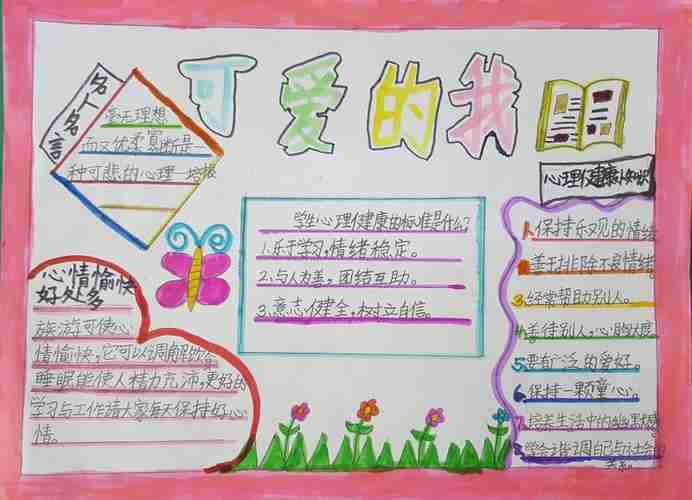 可爱的我
名人名言
毫无理想
而又优柔寡断是
种可悲的心理 培根
心理健康小知识
学生心理健康的标准是什么?
1.乐于学习,情绪稳定。
2.与人为善,团结互助。
3.意志健全,树立自信。
1.保持乐观的情绪
2.善于排除不良情绪。
3.经常帮助别人。
4.善待别人,心胸大度
5.要有广泛的爱好。
6.保持一颗童心。
7.培养生活中的幽默感
8.学会协调自己与社会的
关系
心情愉快
好处多
旅游可使心
情愉快,它可以调解
睡眠能使人精力充沛,更好的
学习与工作请大家每天保持好心
情。